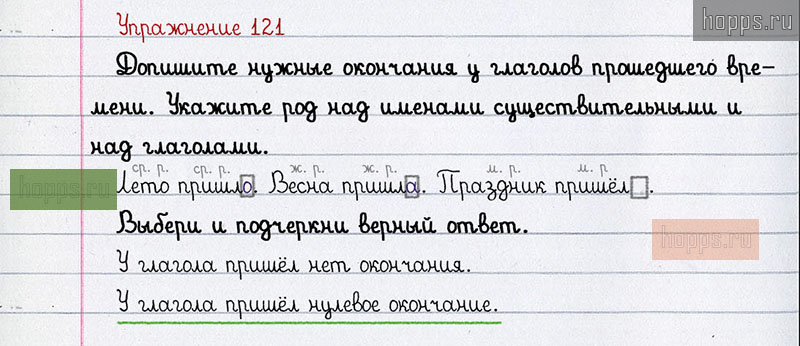 hopps.ru
Упражнение 121
Допишите нужные окончания у глаголов прошедшего вре-
мени. Укажите род над именами существительными и
над глаголами.
ср. р. ср. р. ж. р. ж. р. м. р. м. р
hopps.ru
Лето пришло. Весна пришла. Праздник пришёл .
Выбери и подчеркни верный ответ.
hopps.ru
У глагола пришёл нет окончания.
У глагола пришёл нулевое окончание.